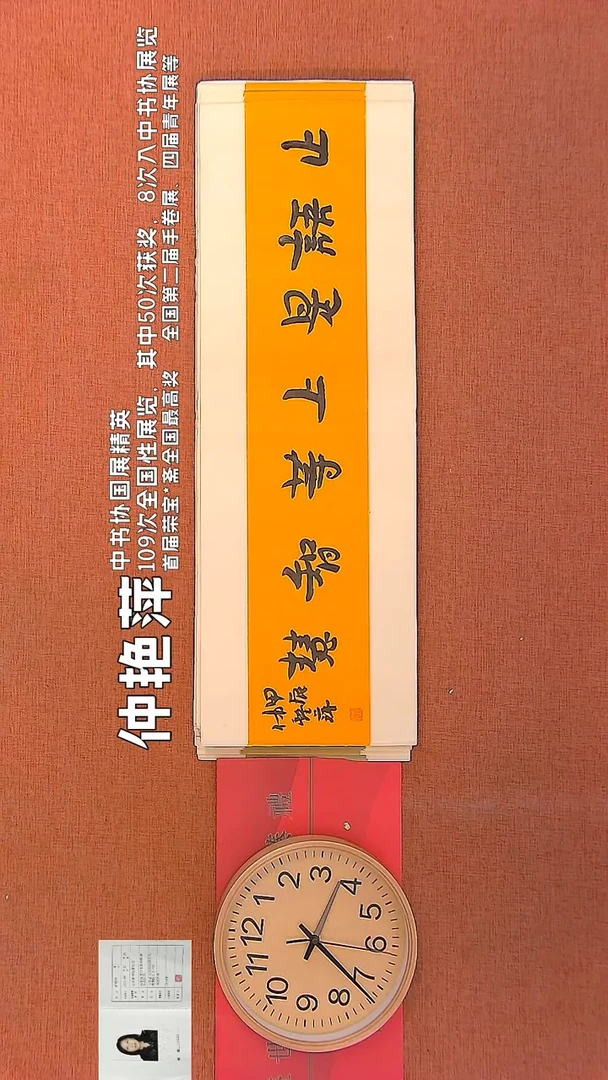 仲艳萍
中书协国展精英
109次全国性展览，其中50次获奖，8次入中书协展览
首届荣宝*斋全国最高奖 全国第二届手卷展、四届青年展等
止語是上等智慧
甲辰
禮
12
1
2
3
4
5
6
7
8
9
10
11